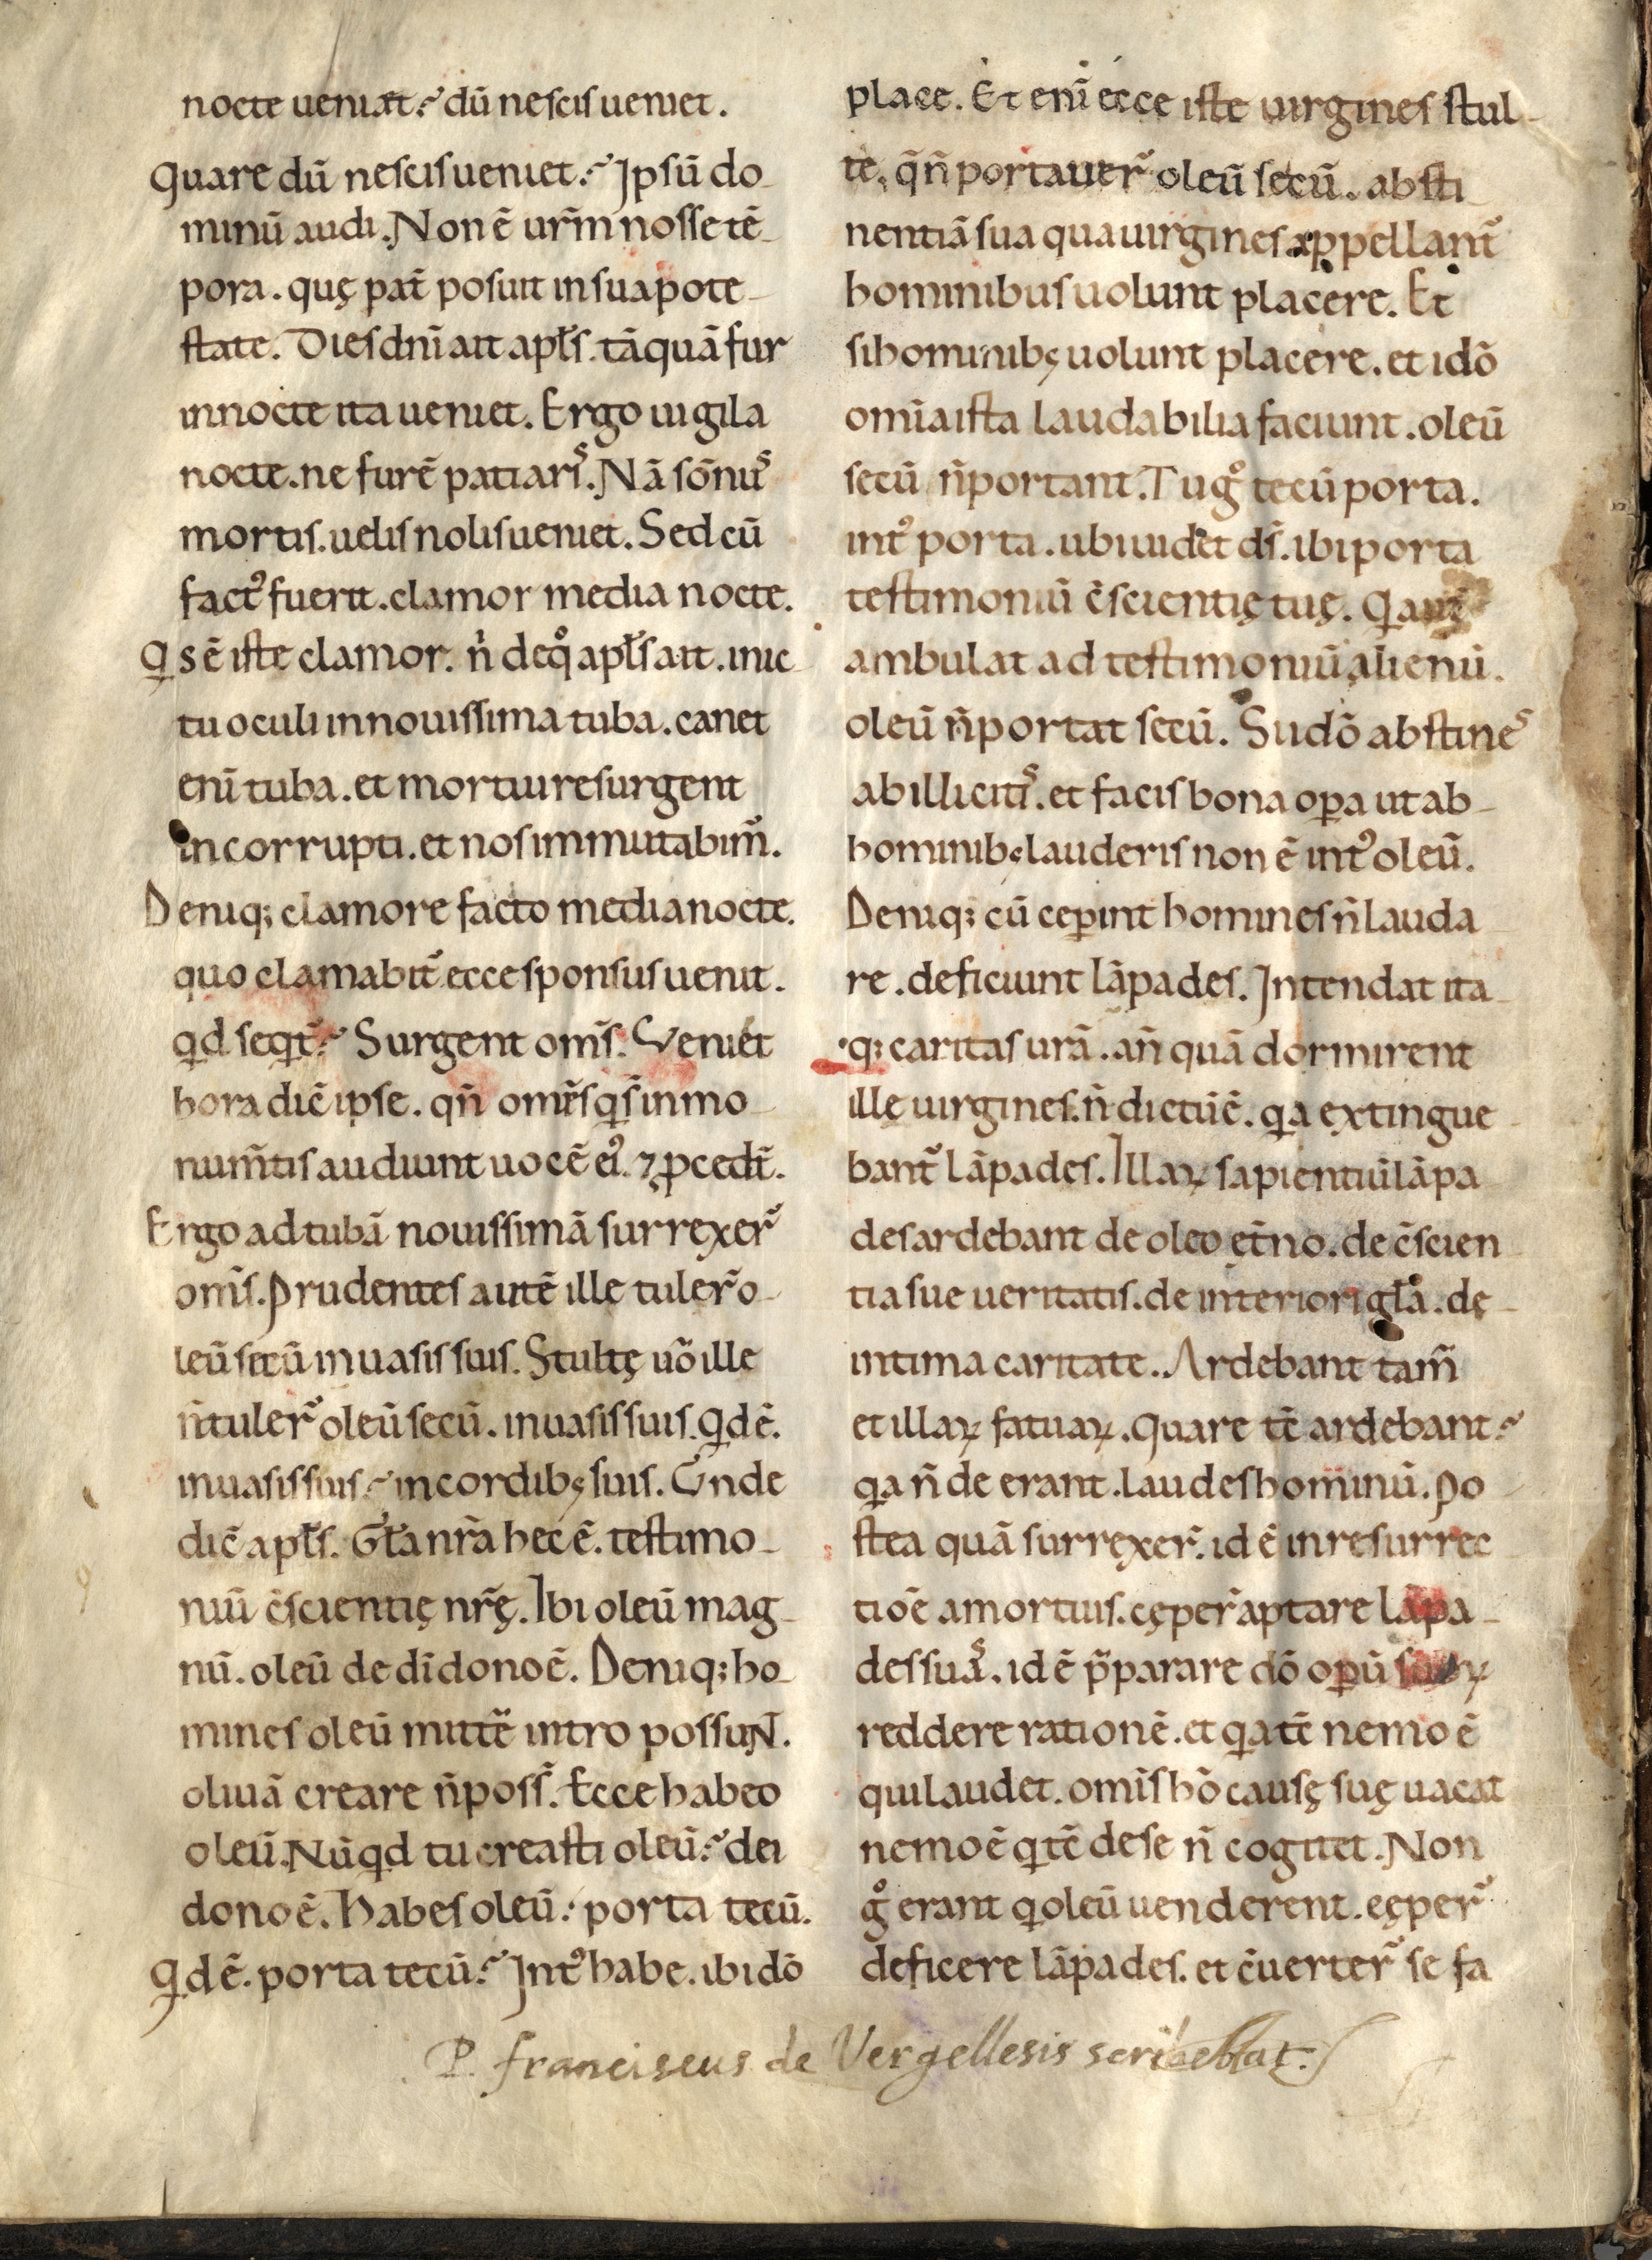 nocte ueniat.᷄ dū nescis ueniet.
Quare dū nescis ueniet.᷄ Ipsū do-
minū audi. Non ē urm̄ nosse tē-
pora. quę pat̄ posuit in sua pote-
state. Dies dn̄i ait apłs. tāquā fur
in nocte ita ueniet. Ergo uigila
nocte. ne furē patiaris. Nā sōnus
mortis. uelis nolis ueniet. Sed cū
factꝰ fuerit. clamor media nocte.
Qs ē iste clamor. n̄ de qͦ apłs ait. in ic-
tu oculi in nouissima tuba. canet
enī tuba. et mortui resurgent
incorrupti. et nos immutabim̄.
Deniq; clamore facto media nocte.
quo clamabit᷄ ecce sponsus uenit.
qd seqt᷄.᷄ Surgent om̄s. Veniet
hora dic̄ ipse. qn̄ om̄s qs̄ in mo-
num̄tis audiunt uocē eiꝰ. ⁊ ꝓcedt̄.
Ergo ad tubā nouissimā surrexer᷄
om̄s. Prudentes autē ille tuler᷄ o-
leū secū in uasis suis. Stultę uō ille
n̄ tuler᷄ oleū secū. in uasis suis. Qd ē.
in uasis suis.᷄ in cordibꝫ suis. Unde
dic̄ apłs. Gła nr̄a hec ē. testimo-
niū c̄scientię nrę̄. Ibi oleū mag-
nū. oleū de dī dono ē. Deniq; ho-
mines oleū mittē intro possuɴt.
oliuā creare n̄ poss̄. Ecce habeo
oleū. Nūqd tu creasti oleū.᷄ dei
dono ē. Habes oleū.᷄ porta tecū.
Qd ē. porta tecū.᷄ Intꝰ habe. ibi dō
place. Et enī ecce iste uirgines stul-
te. q̄ n̄ portauer᷄ oleū secū. absti-
nentiā sua qua uirgines appellant᷄
hominibus uolunt placere. Et
si hominibꝫ uolunt placere. et idō
om̄ia ista laudabilia faciunt. oleū
secū n̄ portant. Tu gͦ tecū porta.
intꝰ porta. ubi uidet ds̄. ibi porta
testimoniū c̄scientię tuę. Q aut̄
ambulat ad testimoniū alienū.
oleū n̄ portat secū. Si udō abstines
ab illicitis. et facis bona oꝑa ut ab
hominibꝫ lauderis non ē intꝰ oleū.
Deniq; cū ceꝑint homines n̄ lauda
re. deficiunt lāpades. Intendat ita-
q; caritas ur̄a. an̄ quā dormirent
ille uirgines. n̄ dictū ē. qa extingue-
bant᷄ lāpades. Illaꝝ sapientiū lāpa
des ardebant de oleo et̄no. de c̄scien
tia sue ueritatis. de interiori gła. de-
intima caritate. Ardebant tam̄
et illaꝝ fatuaꝝ. Quare tē ardebant.᷄
qa n̄ de erant. laudes hominū. Po
stea quā surrexer᷄. id ē in resurrec
tiōe a mortuis. cęper᷄ aptare lāpa-
des suas. id ē p̄parare dō opū suoꝝ
reddere rationē. et qa tē nemo ē
qui laudet. omīs hō causę suę uacat
nemo ē q tē de se n̄ cogitet. Non
gͦ erant q oleū uenderent. cęper᷄
deficere lāpades. et c̄uerter᷄ se fa
P. franciscus de Vergellesis scribeblat.